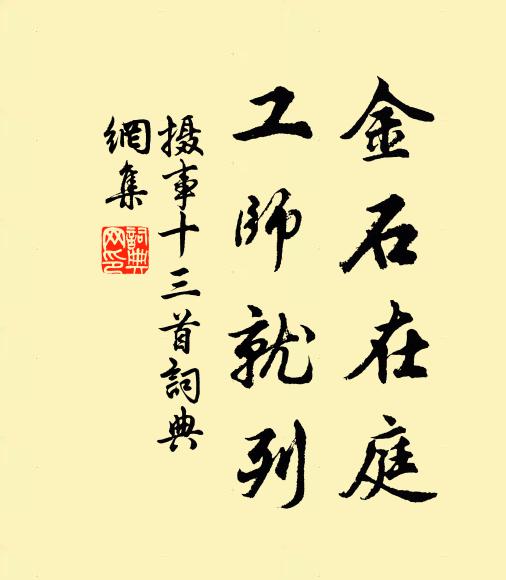 金石在庭
工師就列
摄事十三首詞典
網集
詞典
网印